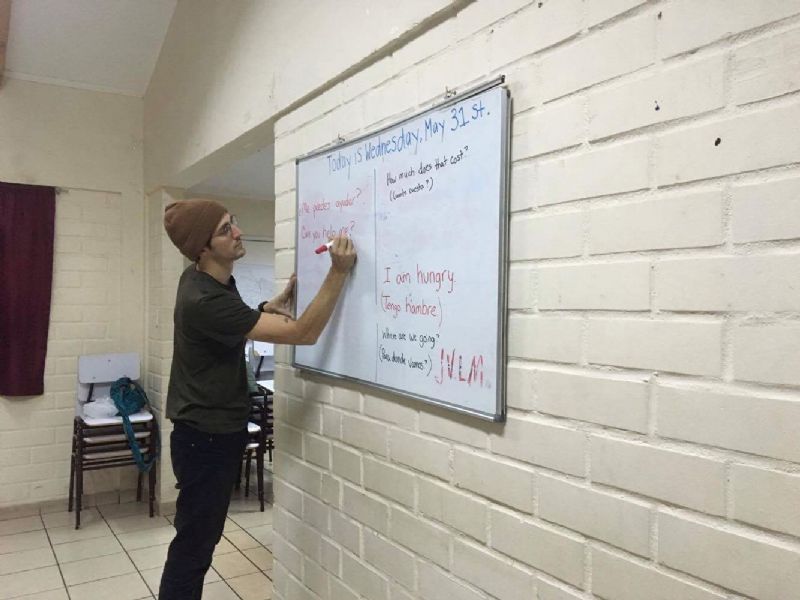 Today is Wednesday, May 31st.
¿Me puedes ayudar?
Can you help me?
How much does that cost?
(Cuanto cuesta?)
I am hungry.
(Tengo hambre)
Where are we going?
(Para donde vamos?)
J.V.L.M.